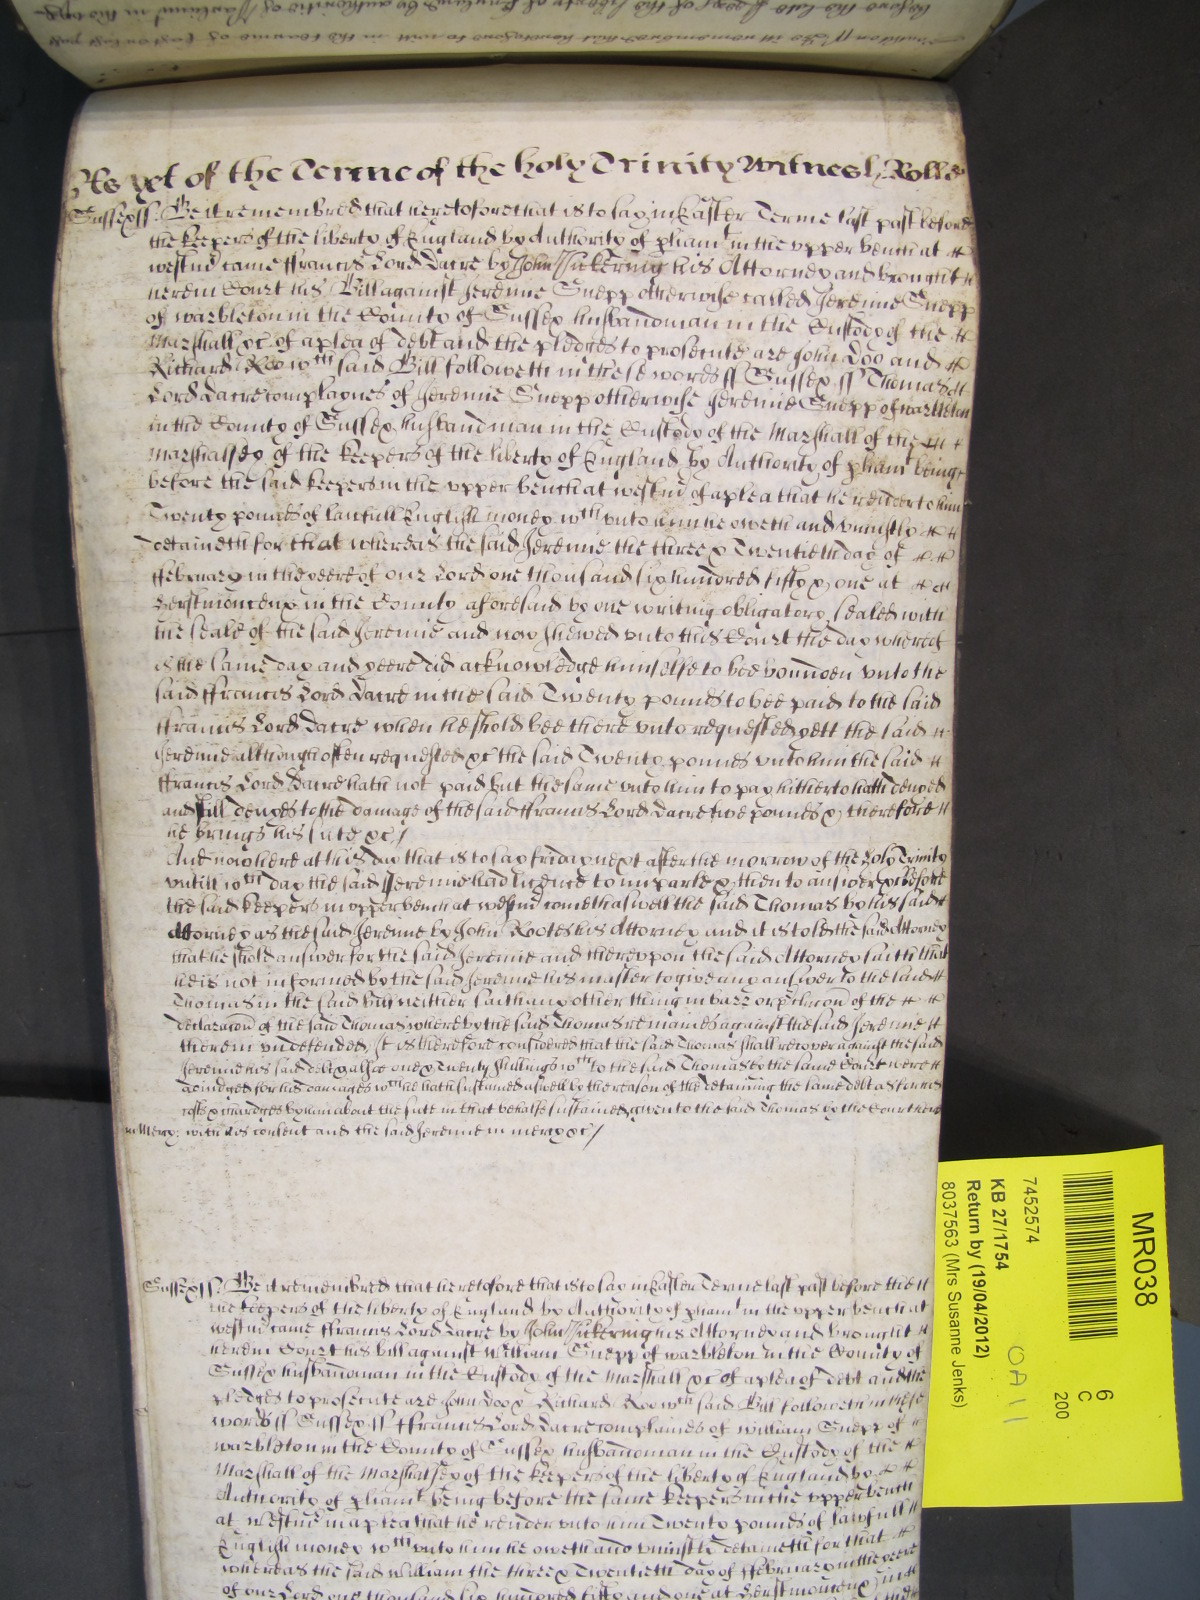 As yet of the Terme of the holy Trinity Witnes H: Rolle
Sussex ss. Be it remembred that heretofore that is to say in Easter Terme last past before
the keepers of the liberty of England by Authority of pliamt in the upper bench at
westmr came ffrancis Lord Dacre by John Pickering his Attorney and brought
herein Court his Bill against Jeremie Snepp otherwise called Jeremie Snepp
of warbleton in the County of Sussex husbandman in the Custody of the
Marshall &c of a plea of debt and the pledges to prosecute are John Doo and
Richard Roo wth said Bill followeth in these words ss Sussex ss Thomas
Lord Dacre complaynes of Jeremie Snepp otherwise Jeremie Snepp of warbleton
in the County of Sussex husbandman in the Custody of the Marshall of the
Marshallsey of the keepers of the liberty of England by Authority of pliamt being
before the said keepers in the upper bench at westmr of a plea that he render to him
Twenty pounds of lawfull English money wch unto him he oweth and uniustly
detaineth for that whereas the said Jeremie the three & Twentieth day of
ffebruary in the yeere of our Lord one thousand six hundred fifty & one at
Herstmonceux in the County aforesaid by one writing obligatory sealed with
the seale of the said Jeremie and now shewed unto this Court the day whereof
is the same day and yeere did acknowledge himselfe to bee bounden unto the
said ffrancis Lord Dacre in the said Twenty pounds to bee paid to the said
ffrancis Lord Dacre when he shold bee there unto requested yett the said
Jeremie although often requested &c the said Twenty pounds unto him the said
ffrancis Lord Dacre hath not paid but the same unto him to pay hitherto hath denyed
and still denyes to the damage of the said ffrancis Lord Dacre five pounds & therefore
he brings his sute &c/
And now here at this day that is to say friday next after the morrow of the Holy Trinity
untill wch day the said Jeremie had licence to imparle & then to answer &c before
the said keepers in upper bench at westmr cometh aswell the said Thomas by his said
Attorney as the said Jeremie by John Rootes his Attorney and it is told the said Attorney
that he shold answer for the said Jeremie and thereupon the said Attorney saith that
he is not informed by the said Jeremie his master to give any answer to the said
Thomas in the said Bill neither saith any other thing in barr or of the
declaracon of the said Thomas whereby the said Thomas remaines against the said Jeremie
therein undefended, It is therefore considered that the said Thomas shall recover against the said
Jeremie his said debt & allsoe one & Twenty shillings wch to the said Thomas by the same Court were
adiudged for his damages wch he hath sustained aswell by the reason of the detaining the same debt as for his
costs & chardges by him about the sute in that behalfe sustained given to the said Thomas by the Court here
in Mercy: with his consent and the said Jeremie in mercy &c/
Sussex ss. Be it remembred that heretofore that is to say in Easter Terme last past before the
the keepers of the liberty of England by Authority of pliamt in the upper bench at
westmr came ffrancis Lord Dacre by John Pickering his Attorney and brought
herein Court his bill against William Snepp of warbleton in the County of
Sussex husbandman in the Custody of the Marshall &c of a plea of debt and the
pledges to prosecute are John Doo & Richard Roo wch said Bill followeth in these
words ss Sussex ss ffrancis Lord Dacre complaines of William Snepp of
warbleton in the County of Sussex husbandman in the Custody of the
Marshall of the Marshalsey of the keepers of the liberty of England by
Authority of pliamt being before the same keepers in the upper bench
at westmr in a plea that he render unto him Twenty pounds of lawfull
English money wch unto him he oweth and uniustly detaineth for that
whereas the said William the three & Twentieth day of ffebruary in the yeere
of our Lord one thousand six hundred fifty and one at Herstmonceux in
MR038
6
C
200
7452574
KB 27/1754
Return by (19/04/2012)
8037563 (Mrs Susanne Jenks)